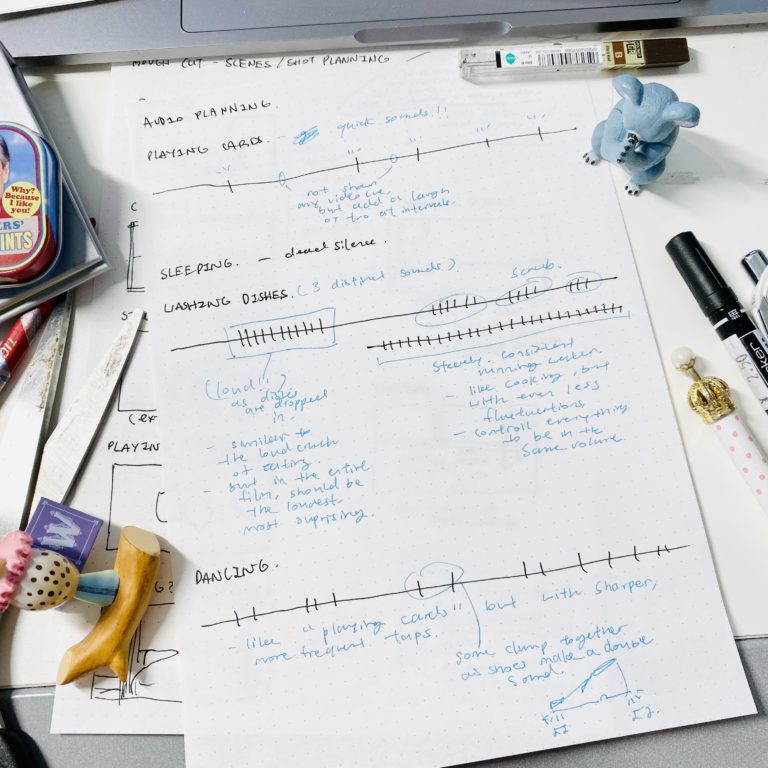 ROUGH CUT - SCENES / SHOT PLANNING
AUDIO PLANNING.
PLAYING CARDS. - quick sounds!!
not shown
any video cue
but add a laugh
or two at intervals.
SLEEPING. - dead silence.
WASHING DISHES. (3 distinct sounds)
scrub.
(loud!!)
as dishes
are dropped
in.
- similar to
the loud crunch
of eating
- but in the entire
film, should be
the loudest.
most suprising.
Steady. consistent
running water.
- like cooking, but
with even less
fluctuations
- controll everything
to be in the
same volume.
DANCING.
- like a playing cards!! but with sharper,
more frequent taps.
some clump together
as shoes make a double
sound.
Why?
Because
I like
you!
ERS'
INTS
PLAYIN
W
B
2.50